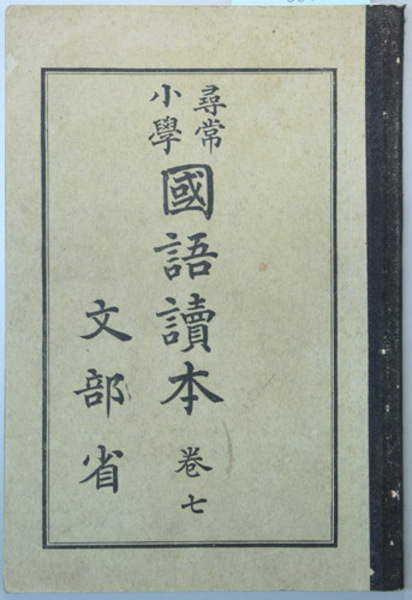 尋常小學國語讀本 卷七
文部省